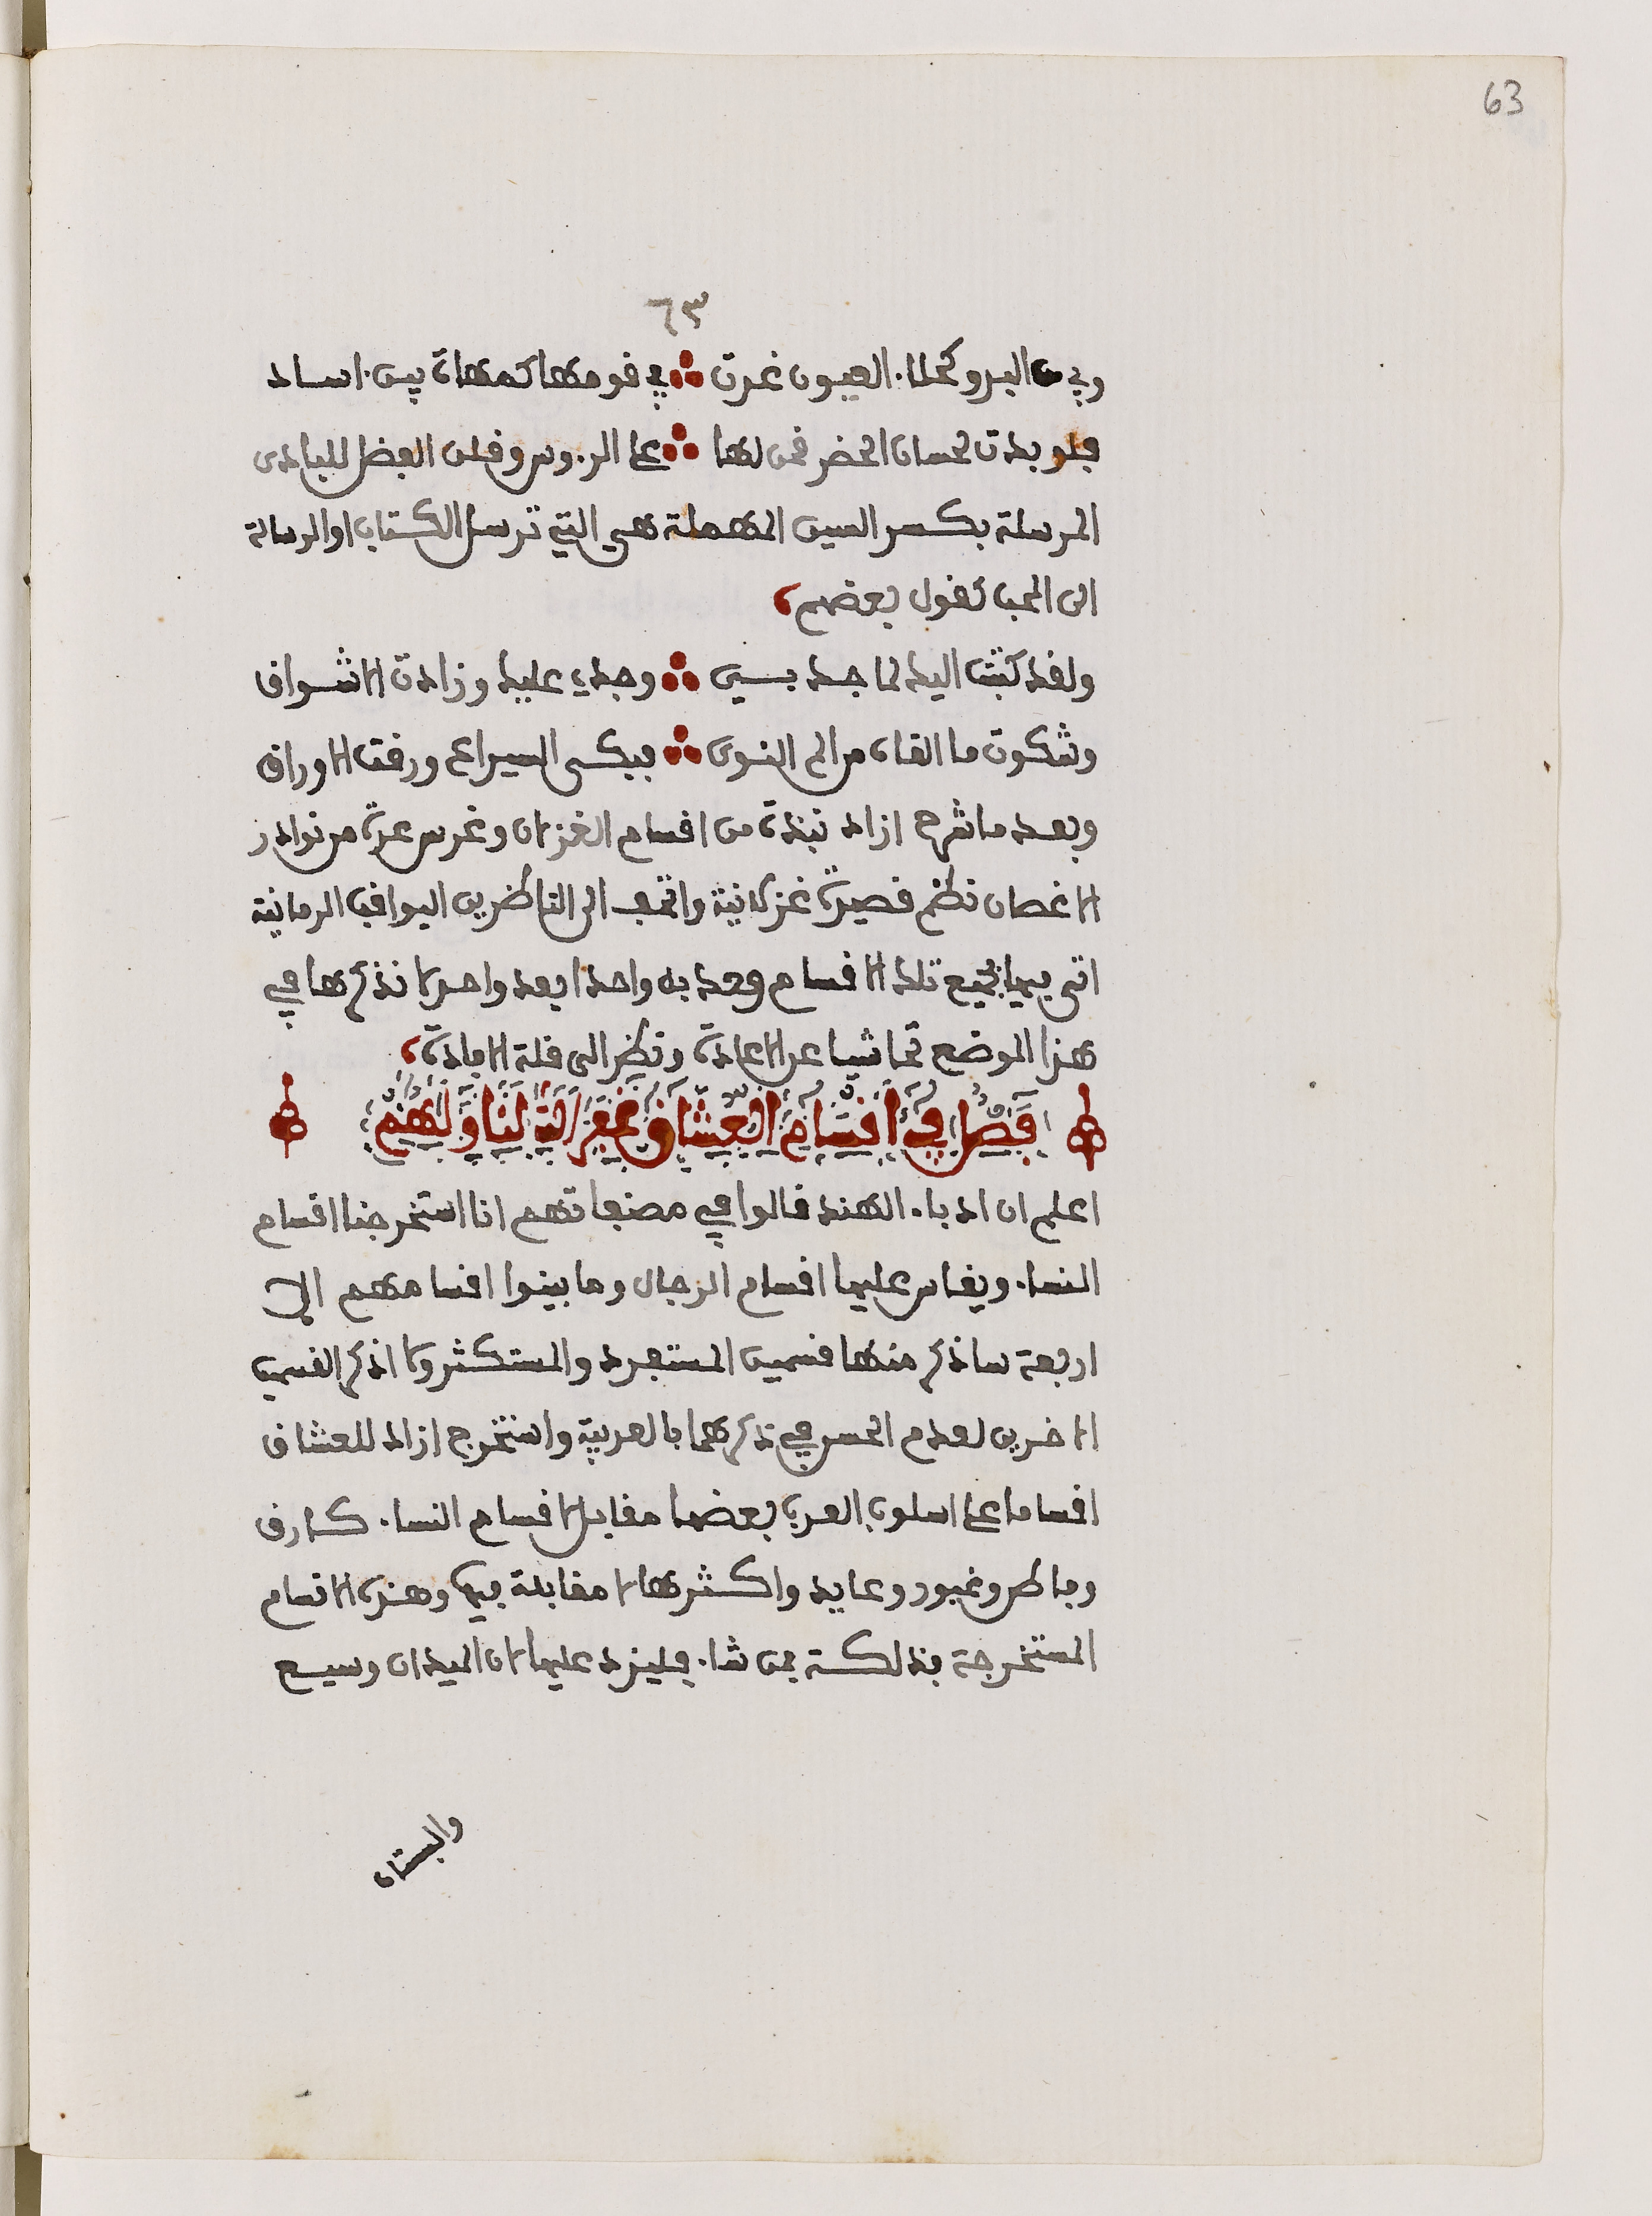 63
٦٣
وفي البدو كحلا. العيون غدت ∴ في قومها كمهاة بين اساد
فلو بدت لحسان الحضر قمن لها ∴ على الروس وقلن الفضل للبادى
المرسلة بكسر السين المهملة هي التي ترسل الكتاب او الرسالة
الى المحب كقول بعضهم
ولقد كتبت اليك لما جد بي ∴ وجدي عليك وزادت الاشواق
وشكوت ما القاه من الم النوى ∴ فبكى اليراع ورقت الاوراق
وبعد ما شرح ازاد نبذة من اقسام الغزلان وغرس عدة من نوادر
الاغصان نظم قصيدة غزلانية واتحف الى الناظرين اليواقيت الرمانية
اتى فيها بجميع تلك الاقسام واحدا بعد واحد لا نذكرها في
هذا الموضع تحاشيا عن الاعادة ونظرا الى قلة الافادة
فصل في اقسام العشاق
اعلم ان ادباء الهند قالوا في مصنفاتهم انا استخرجنا اقسام
النسا. ويقاس عليها اقسام الرجال وما بينوا اقسامهم الا
اربعة ساذكر منها قسمين المتفرد والمستكثر ولا اذكر القسمين
الاخرين لعدم الحسن في ذكرهما بالعربية واستخرج ازاد للعشاق
اقساما على اسلوب العرب بعضها مقابل لاقسام النسا. كطارق
وماطر وغيور وعايد واكثرها لا مقابلة فيها وهذه الاقسام
المستخرجة فذلكة فمن شا. فليزد عليها لان الميدان وسيع
والبستان